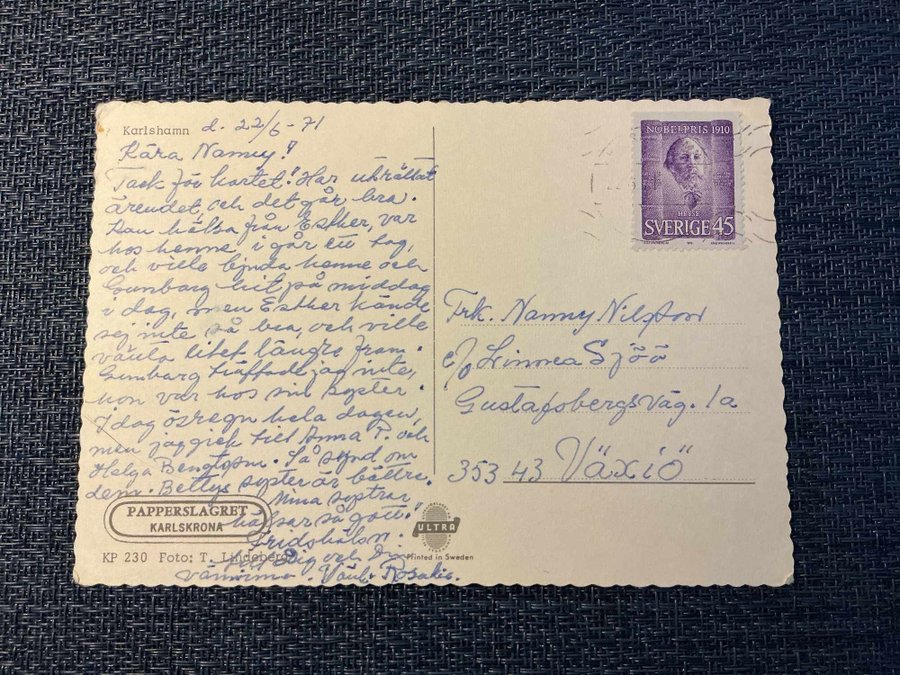 Karlshamn d. 22/6-71
Kära Nanny!
Tack för kortet! Har uträttat
ärendet, och det går bra.
Kan hälsa från Esther, var
hos henne i går en dag,
och ville bjuda henne och
Gunborg hit på middag
i dag, men Esther kände
sej inte så bra, och ville
vänta litet längre fram.
Gunborg träffade jag inte,
hon var hos sin syster.
I dag ösregn hela dagen,
men jag gick till Anna P. och
Helga Bengtson. Så synd om
dem. Bettys syster är bättre.
Mina systrar
hälsar så gott!
Fridshälsn.
Dig och
vännerna. Rosalie.
PAPPERSLAGRET
KARLSKRONA
KP 230 Foto: T. Lindeberg
ULTRA
Printed in Sweden
NOBELPRIS 1910
HEYSE
SVERIGE 45
Frk. Nanny Nilsson
c/o Linnea Sjöö
Gustafsbergsväg. 1a
353 43 Växjö